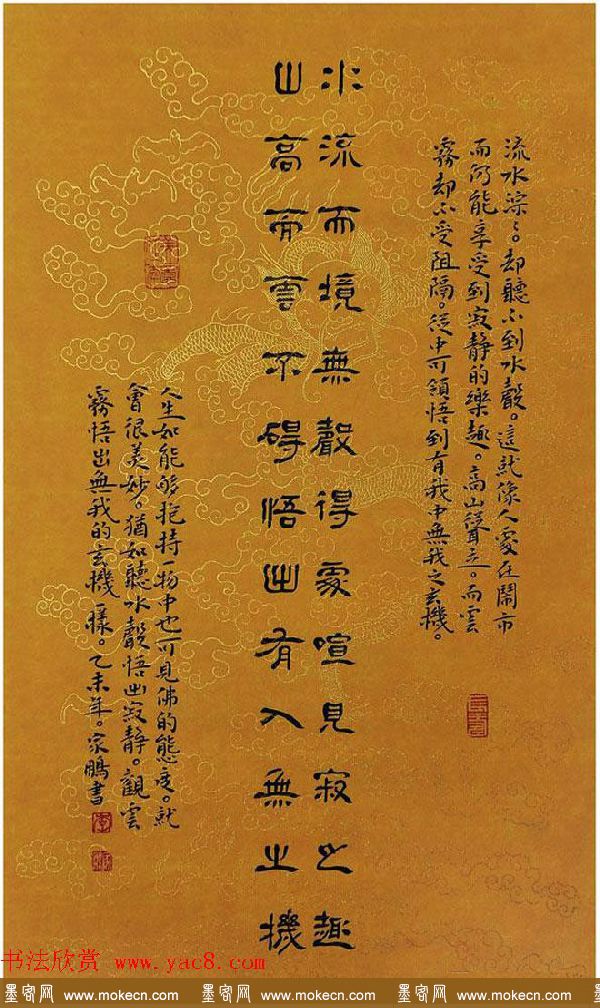 流水淙々。却聽不到水聲。這就像人處在鬧市
而仍能享受到寂静的樂趣。高山聳立。而雲
霧却不受阻隔。從中可領悟到有我中無我之玄機。
水流而境無聲得處喧見寂之趣
山高而雲不碍悟出有入無之機
人生如能够抱持一物中也可見佛的態度。就
會很美妙。猶如聽水聲悟出寂静。觀雲
霧悟出無我的玄機一樣。乙未年。家鵬書
书法欣赏 www.yac8.com
墨客网 www.mokecn.com 墨客网 www.mokecn.com 墨客网 www.mokecn.com